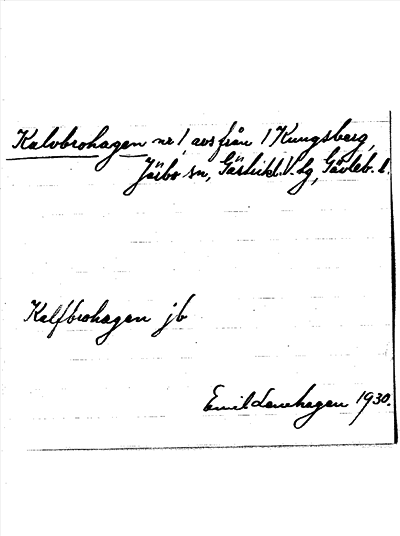 Kalvbrohagen nr 1, avs från 1 Kungsberg,
Järbo sn, Gästrikl. V. dg, Gävleb. l.
Kalfbrohagen jb
Emil Lenehagen 1930.